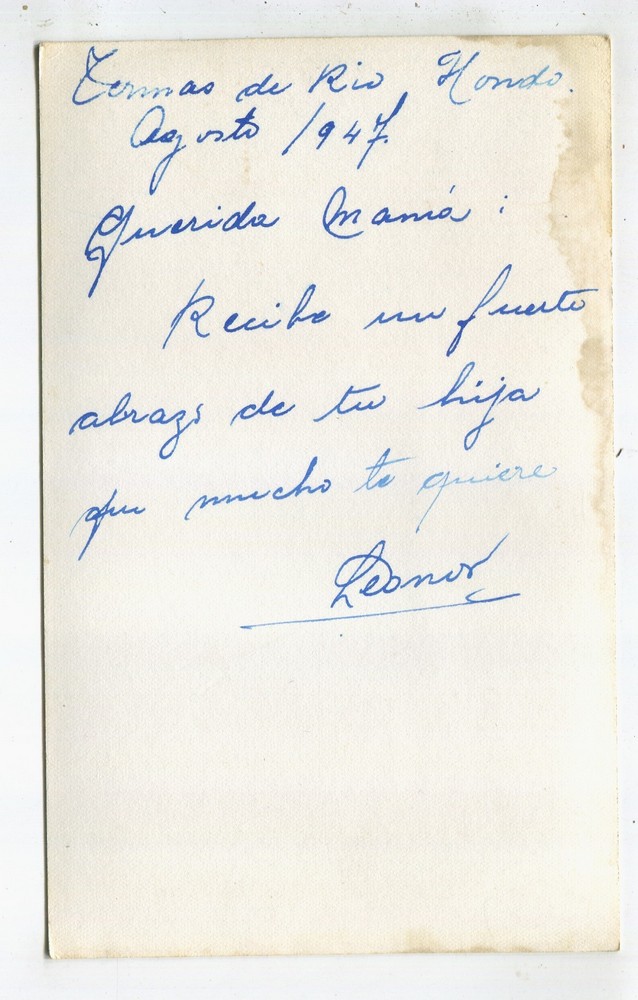 Termas de Rio Hondo.
Agosto /947.
Querida Mamá:
Recibe un fuerte
abrazo de tu hija
que mucho te quiere
Leonor